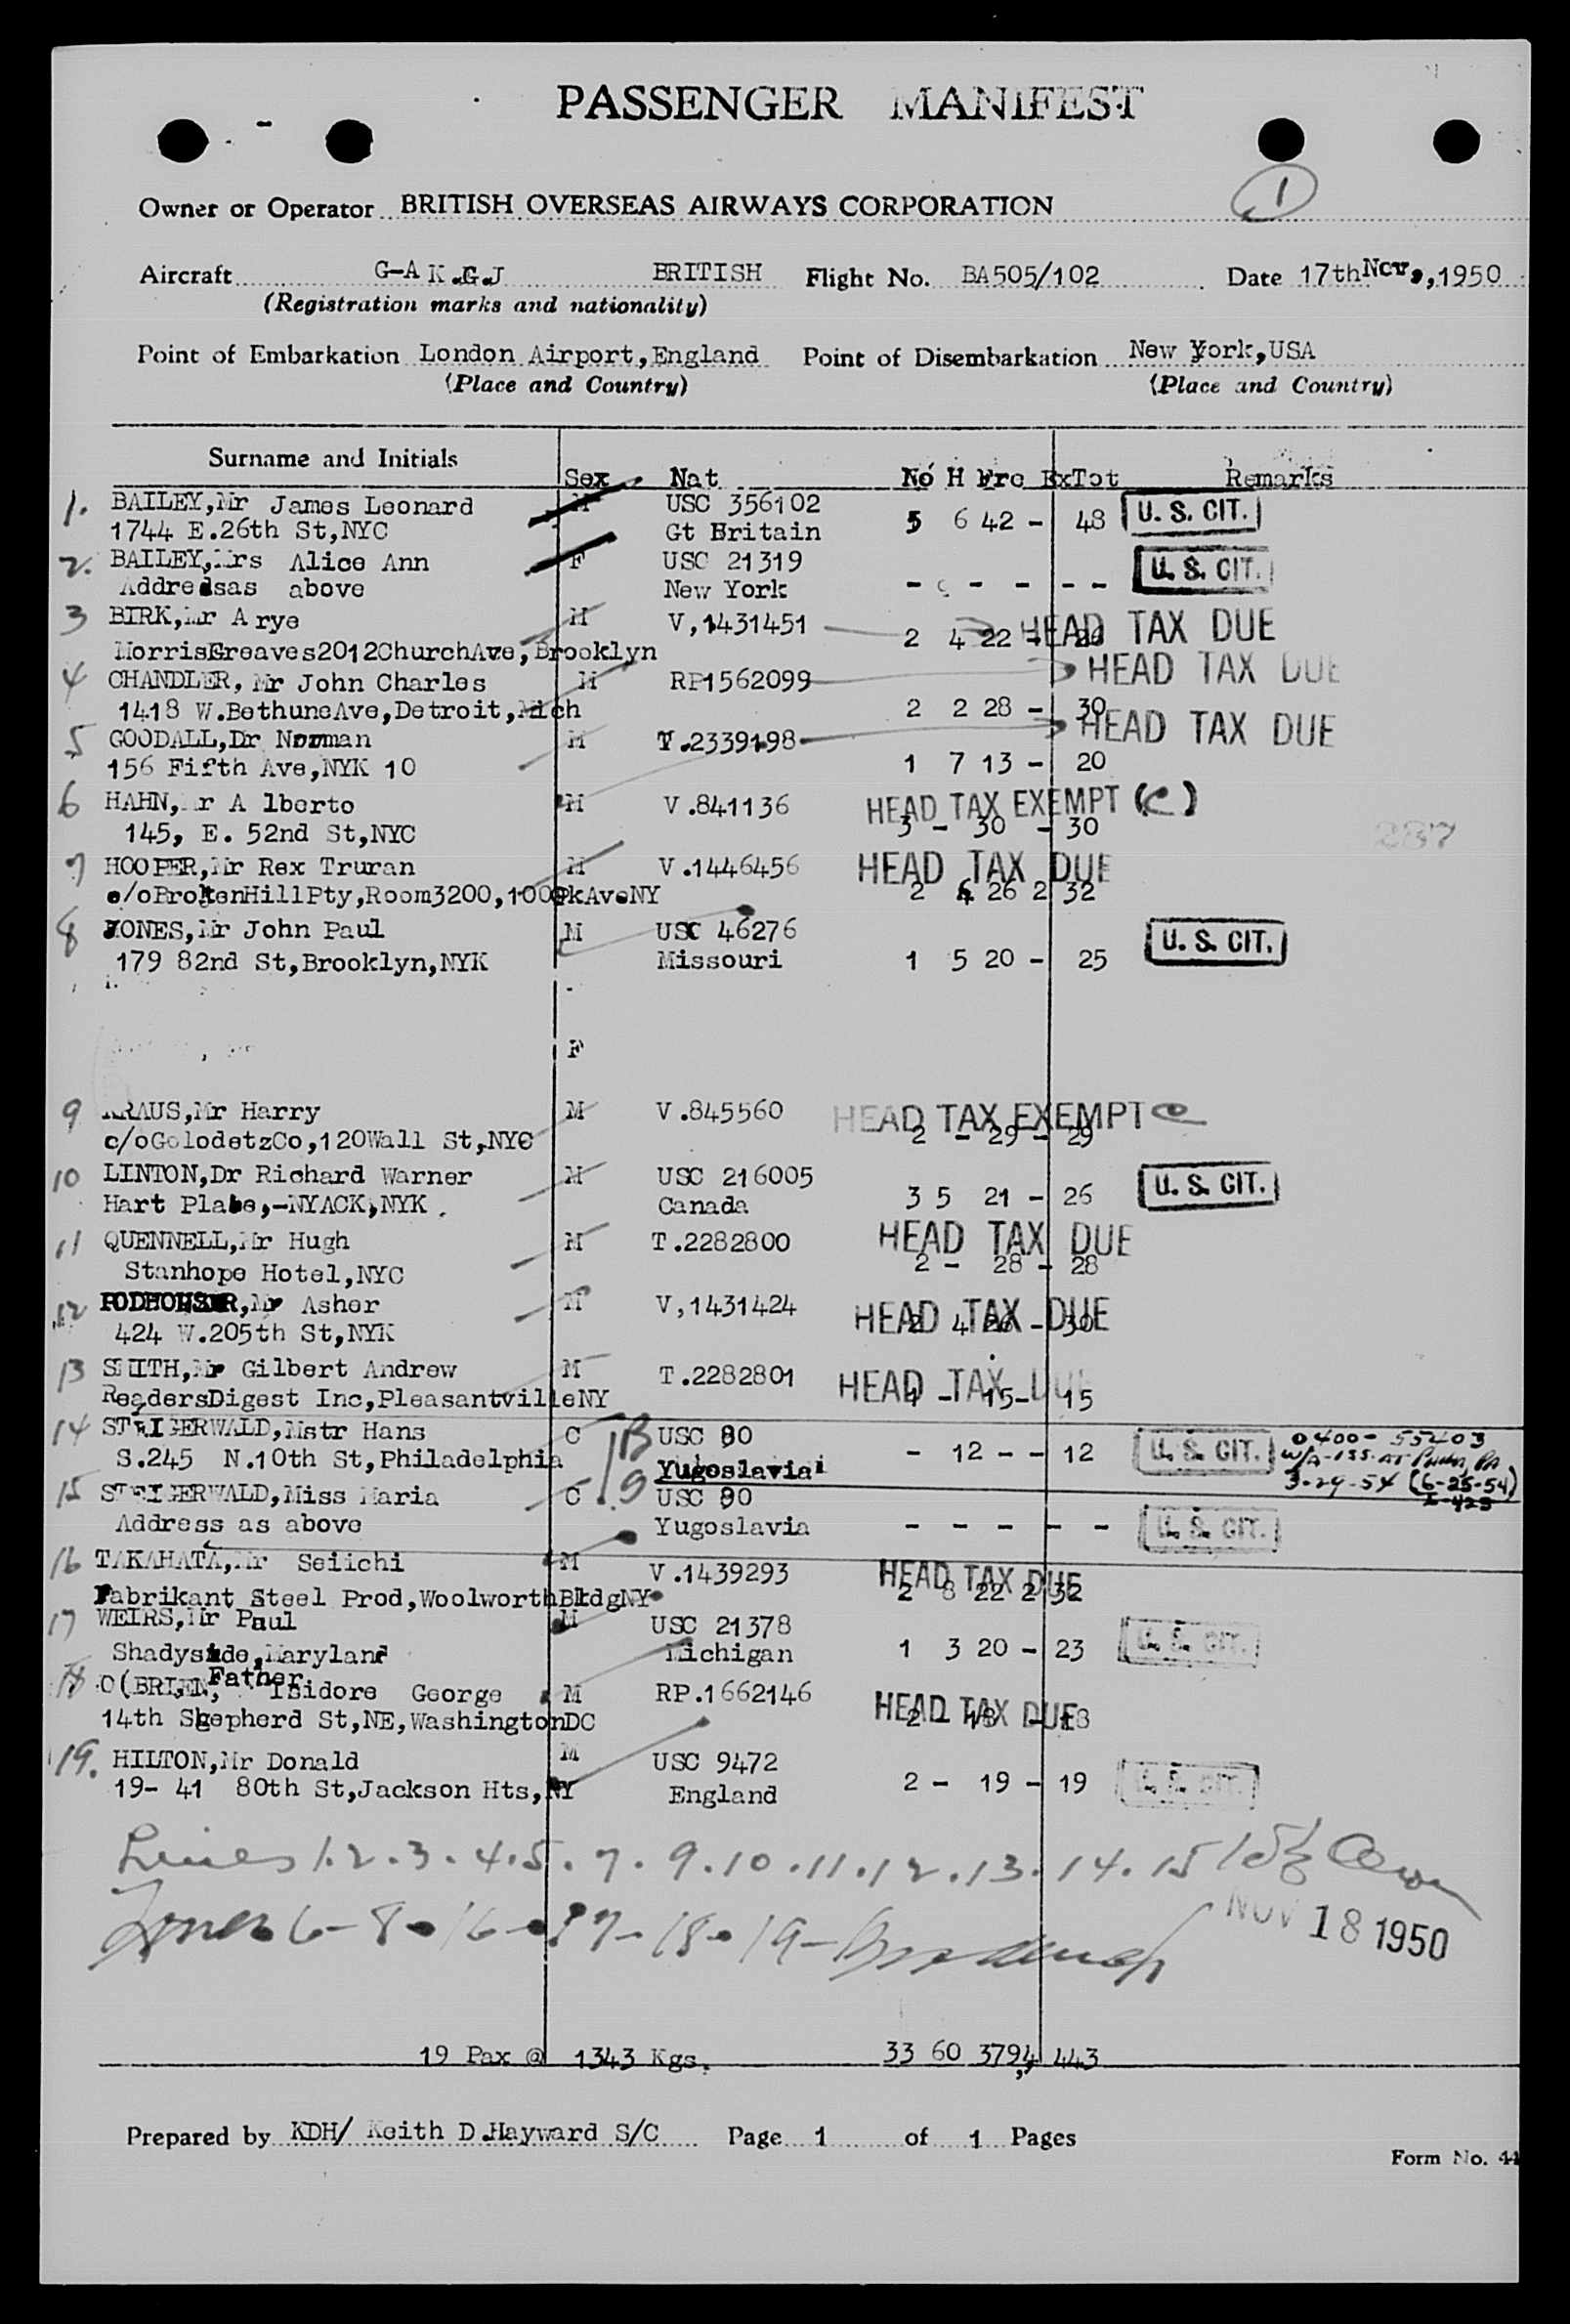 PASSENGER MANIFEST
1
Owner or Operator BRITISH OVERSEAS AIRWAYS CORPORATION
Aircraft G-A K.G.J BRITISH Flight No. BA505/102 Date 17th Nov., 1950
(Registration marks and nationality)
Point of Embarkation London Airport, England Point of Disembarkation New York, USA
(Place and Country) (Place and Country)
Surname and Initials Sex Nat No H Fre Ex Tot Remarks
1. BAILEY, Mr James Leonard M USC 356102
1744 E.26th St, NYC Gt Britain 5 6 42 - 48 U. S. CIT.
2. BAILEY, Mrs Alice Ann F USC 21319 U. S. CIT.
Addredsas above New York - - - - - -
3 BIRK, Mr Arye M V,1431451 2 4 22 - 26 HEAD TAX DUE
MorrisGreaves2012ChurchAve, Brooklyn
4 CHANDLER, Mr John Charles M RP1562099 HEAD TAX DUE
1418 W.BethuneAve, Detroit, Mich 2 2 28 - 30
5 GOODALL, Dr Norman M T.2339198 HEAD TAX DUE
156 Fifth Ave, NYK 10 1 7 13 - 20
6 HAHN, Mr A lberto M V.841136 HEAD TAX EXEMPT (C)
145, E. 52nd St, NYC 3 - 30 - 30
287
7 HOOPER, Mr Rex Truran M V.1446456 HEAD TAX DUE
c/oBrokenHillPty, Room3200, 100PkAveNY 2 4 26 2 32
8 JONES, Mr John Paul M USC 46276 U. S. CIT.
179 82nd St, Brooklyn, NYK Missouri 1 5 20 - 25
F
9 KRAUS, Mr Harry M V.845560 HEAD TAX EXEMPT C
c/oGolodetzCo, 120Wall St, NYC 2 - 29 - 29
10 LINTON, Dr Richard Warner M USC 216005 U. S. CIT.
Hart Place, -NYACK, NYK. Canada 3 5 21 - 26
11 QUENNELL, Mr Hugh M T.2282800 HEAD TAX DUE
Stanhope Hotel, NYC 2 - 28 - 28
12 Mr Asher M V,1431424 HEAD TAX DUE
424 W.205th St, NYK 2 4 26 - 30
13 SMITH, Mr Gilbert Andrew M T.2282801 HEAD TAX DUE
ReadersDigest Inc, PleasantvilleNY 1 - 15 - 15
14 STEIGERWALD, Mstr Hans C USC 80 U. S. CIT. 0400-55203
S.245 N.10th St, Philadelphia Yugoslavia - 12 - - 12
3-29-54 (6-25-54)
15 STEIGERWALD, Miss Maria C USC 80
Address as above Yugoslavia - - - - - U. S. CIT.
16 TAKAHATA, Mr Seiichi M V.1439293 HEAD TAX DUE
Fabrikant Steel Prod, WoolworthBldgNY 2 8 22 2 32
17 WEIRS, Mr Paul M USC 21378
Shadyside, Maryland Michigan 1 3 20 - 23 U. S. CIT.
18 O(BRIEN, Father Isidore George M RP.1662146 HEAD TAX DUE
14th Shepherd St, NE, WashingtonDC
19. HILTON, Mr Donald M USC 9472
19- 41 80th St, Jackson Hts, NY England 2 - 19 - 19 U. S. CIT.
Lines 1.2.3.4.5.7.9.10.11.12.13.14.15
Lines 6-8-16-17-18-19-
NOV 18 1950
19 Pax @ 1343 Kgs. 33 60 379 4 443
Prepared by KDH/ Keith D.Hayward S/C Page 1 of 1 Pages
Form No. 44